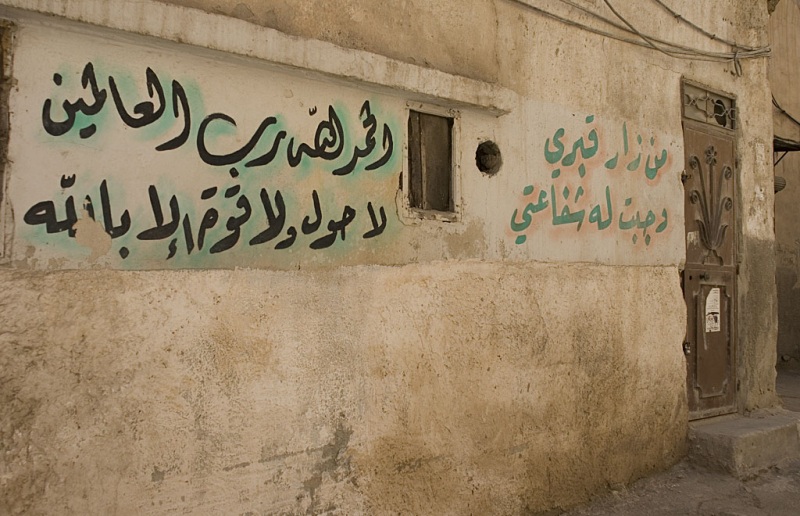 من زار قبري
وجبت له شفاعتي
الحمد لله رب العالمين
لا حول ولا قوة إلا بالله